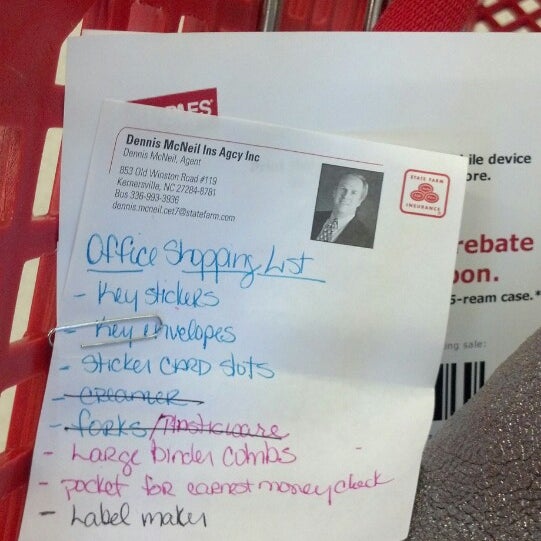 APLES
Dennis McNeil Ins Agcy Inc
Dennis McNeil, Agent
853 Old Winston Road #119
Kernersville, NC 27284-8781
Bus 336-993-3936
dennis.mcneil.cet7@statefarm.com
STATE FARM
INSURANCE
Office Shopping List
- Key stickers
- Key envelopes
- Sticker CARD slots
- creamer
- forks/Plasticware
- Large binder combs -
- pocket for earnest money check
- Label maker
ile device
ore.
rebate
oon.
5-ream case.*
ng sale: